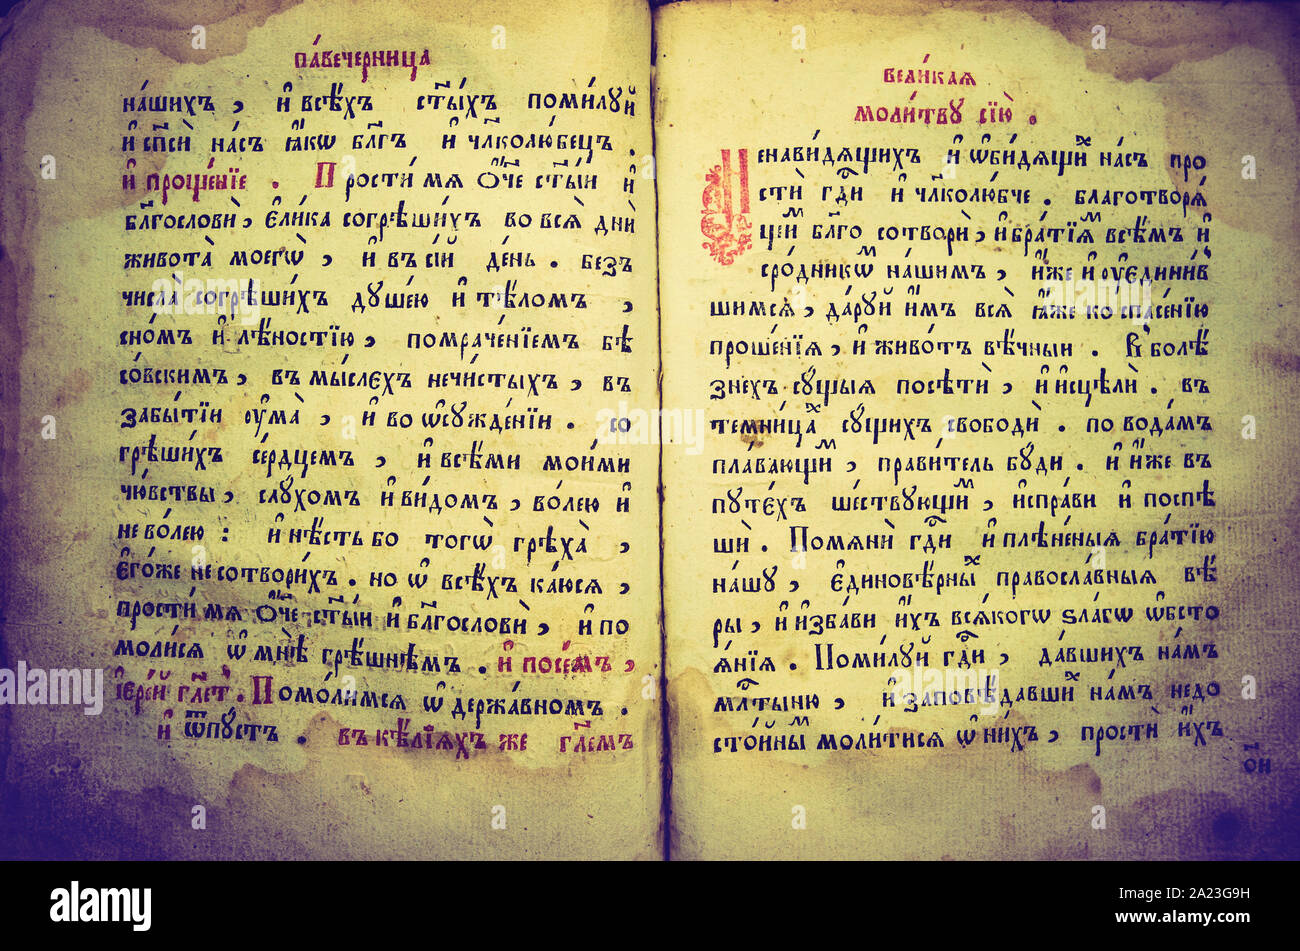 па́вечерница
на́шихъ, и҆ всѣ́хъ ст҃ы́хъ поми́луй
и҆ сп҃си́ на́съ ꙗ҆́кѡ бл҃гъ и҆ чл҃колю́бецъ.
и҆ проще́нїе. Прости́ мѧ ѻ҆́ч҃е ст҃ы́й и҆
бл҃гослови̂, є҆ли́ка согрѣши́хъ во всѧ̀ днѝ
живота̀ моегѡ̀, и҆ въ сі́й де́нь. безъ
числа̀ согрѣши́хъ душе́ю и҆ тѣ́ломъ,
сно́мъ и҆ лѣ́ностїю, помраче́нїемъ бѣ
со́вскимъ, въ мы́слехъ нечи́стыхъ, въ
забы́тїи ѹ҆ма̀, и҆ во ѡ҆сужде́нїи. со
грѣши́хъ се́рдцемъ, и҆ всѣ́ми мои́ми
чю́вствы, слу́хомъ и҆ ви́домъ, во́лею и҆
не во́лею: и҆ нѣ́сть бо тогѡ̀ грѣха̀,
є҆го́же не сотвори́хъ. но ѡ҆ всѣ́хъ ка́юсѧ,
прости́ мѧ ѻ҆́ч҃е ст҃ы́й и҆ бл҃гослови̂, и҆ по
моли́сѧ ѡ҆ мнѣ̀ грѣ́шнѣмъ. и҆ посе́мъ,
і҆ере́й гл҃етъ. Помо́лимсѧ ѡ҆ держа́вномъ.
и҆ ѿпу́стъ. въ кѣ́лїѧхъ же гл҃емъ
вели́каѧ
моли́тву сїю̀.
Ненави́дѧщихъ и҆ ѡ҆би́дѧщихъ на́съ про
стѝ гд҃и и҆ чл҃колю́бче. благотворѧ́
щимъ бл҃го сотворѝ, и҆ бра́тїѧмъ всѣ́мъ и҆
сро́дникѡмъ на́шимъ, и҆́же и҆ ѹ҆единив́
шимсѧ, да́руй и҆́мъ всѧ̀ ꙗ҆́же ко спасе́нїю
проше́нїѧ, и҆ живо́тъ вѣ́чныи. В болѣ́
знехъ су́щыѧ посѣтѝ, и҆ и҆сцѣлѝ. въ
темни́цахъ су́щихъ свободѝ. по вода́мъ
пла́вающимъ, прави́тель бу́ди. и҆ и҆́же въ
путе́хъ ше́ствующимъ, и҆спра́ви и҆ поспѣ
шѝ. Помѧнѝ гд҃и и҆ плѣне́ныѧ бра́тїю
на́шу, є҆диновѣ́рныхъ правосла́вныѧ вѣ́
ры, и҆ и҆зба́ви и҆́хъ всѧ́когѡ ѕла́гѡ ѡ҆бсто
ѧ́нїѧ. Поми́луй гд҃и, да́вшихъ на́мъ
мл҃тыню, и҆ заповѣ́давшихъ на́мъ недо
сто́йнымъ моли́тисѧ ѡ҆ ни́хъ, простѝ и҆́хъ
о҃и
alamy
Image ID: 2A23G9H
www.alamy.com